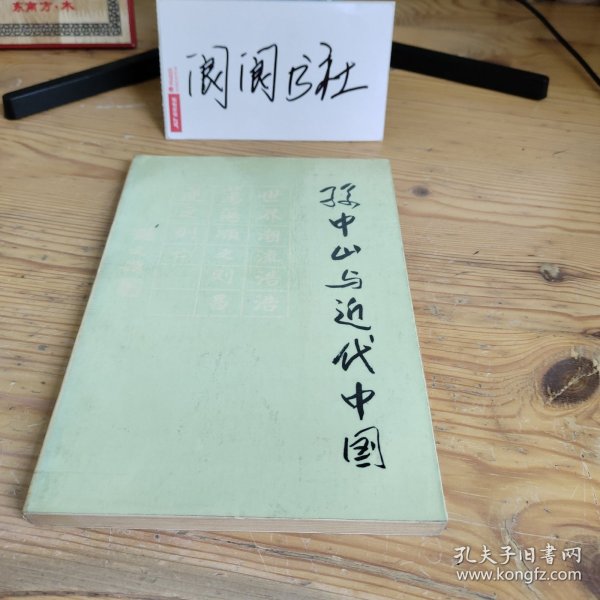 东南方·木
阆阆书社
孙中山与近代中国
世界潮流浩浩
荡荡顺之则昌
逆之则亡
孔夫子旧书网
www.kongfz.com